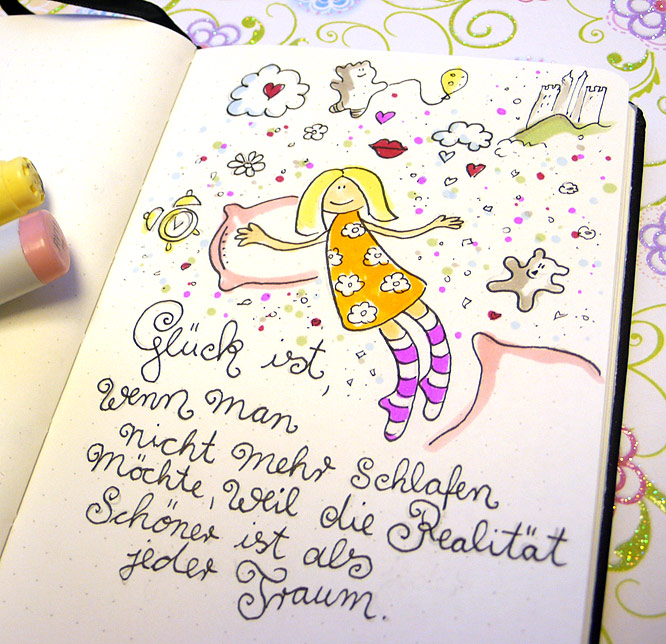 Glück ist,
wenn man
nicht mehr schlafen
möchte, weil die Realität
schöner ist als
jeder Traum.